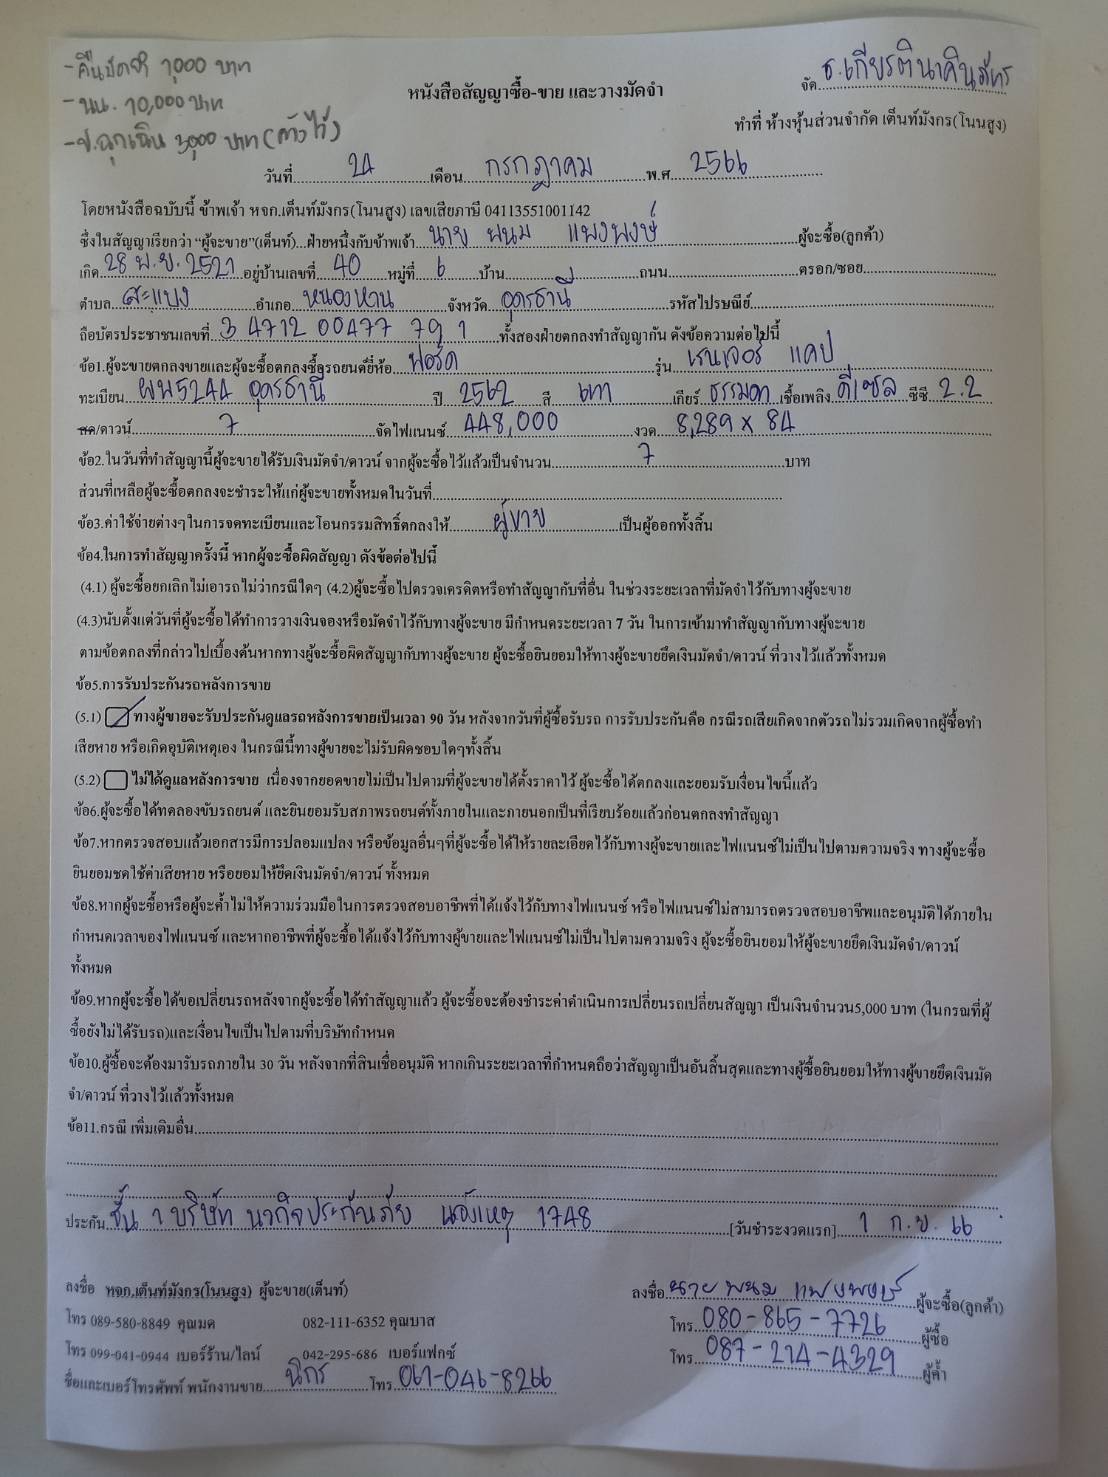 - คืนมัดจำ 1,000 บาท
- นน. 10,000 บาท
- ป.ฉุกเฉิน 3,000 บาท (ค้างไว้)
จัด ธ.เกียรตินาคินภัทร
หนังสือสัญญาซื้อ-ขาย และวางมัดจำ
ทำที่ ห้างหุ้นส่วนจำกัด เต็นท์มังกร(โนนสูง)
วันที่ 24 เดือน กรกฎาคม พ.ศ. 2566
โดยหนังสือฉบับนี้ ข้าพเจ้า หจก.เต็นท์มังกร(โนนสูง) เลขเสียภาษี 04113551001142
ซึ่งในสัญญาเรียกว่า "ผู้จะขาย"(เต็นท์)...ฝ่ายหนึ่งกับข้าพเจ้า นาย พนม แพงพงษ์ ผู้จะซื้อ(ลูกค้า)
เกิด 28 พ.ย. 2521 อยู่บ้านเลขที่ 40 หมู่ที่ 6 บ้าน ถนน ตรอก/ซอย
ตำบล สะแบง อำเภอ หนองหาน จังหวัด อุดรธานี รหัสไปรษณีย์
ถือบัตรประชาชนเลขที่ 3 4712 00477 79 1 ทั้งสองฝ่ายตกลงทำสัญญากัน ดังข้อความต่อไปนี้
ข้อ1.ผู้จะขายตกลงขายและผู้จะซื้อตกลงซื้อรถยนต์ยี่ห้อ ฟอร์ด รุ่น เรนเจอร์ แคป
ทะเบียน ผผ5244 อุดรธานี ปี 2562 สี เทา เกียร์ ธรรมดา เชื้อเพลิง ดีเซล ซีซี 2.2
สด/ดาวน์ 7 จัดไฟแนนซ์ 448,000 งวด 8,289 x 84
ข้อ2.ในวันที่ทำสัญญานี้ผู้จะขายได้รับเงินมัดจำ/ดาวน์ จากผู้จะซื้อไว้แล้วเป็นจำนวน 7 บาท
ส่วนที่เหลือผู้จะซื้อตกลงจะชำระให้แก่ผู้จะขายทั้งหมดในวันที่
ข้อ3.ค่าใช้จ่ายต่างๆในการจดทะเบียนและโอนกรรมสิทธิ์ตกลงให้ ผู้ขาย เป็นผู้ออกทั้งสิ้น
ข้อ4.ในการทำสัญญาครั้งนี้ หากผู้จะซื้อผิดสัญญา ดังข้อต่อไปนี้
(4.1) ผู้จะซื้อยกเลิกไม่เอารถไม่ว่ากรณีใดๆ (4.2)ผู้จะซื้อไปตรวจเครดิตหรือทำสัญญากับที่อื่น ในช่วงระยะเวลาที่มัดจำไว้กับทางผู้จะขาย
(4.3)นับตั้งแต่วันที่ผู้จะซื้อได้ทำการวางเงินจองหรือมัดจำไว้กับทางผู้จะขาย มีกำหนดระยะเวลา 7 วัน ในการเข้ามาทำสัญญากับทางผู้จะขาย
ตามข้อตกลงที่กล่าวไปเบื้องต้นหากทางผู้จะซื้อผิดสัญญากับทางผู้จะขาย ผู้จะซื้อยินยอมให้ทางผู้จะขายยึดเงินมัดจำ/ดาวน์ ที่วางไว้แล้วทั้งหมด
ข้อ5.การรับประกันรถหลังการขาย
(5.1) ทางผู้ขายจะรับประกันดูแลรถหลังการขายเป็นเวลา 90 วัน หลังจากวันที่ผู้ซื้อรับรถ การรับประกันคือ กรณีรถเสียเกิดจากตัวรถไม่รวมเกิดจากผู้ซื้อทำ
เสียหาย หรือเกิดอุบัติเหตุเอง ในกรณีนี้ทางผู้ขายจะไม่รับผิดชอบใดๆทั้งสิ้น
(5.2) ไม่ได้ดูแลหลังการขาย เนื่องจากยอดขายไม่เป็นไปตามที่ผู้จะขายได้ตั้งราคาไว้ ผู้จะซื้อได้ตกลงและยอมรับเงื่อนไขนี้แล้ว
ข้อ6.ผู้จะซื้อได้ทดลองขับรถยนต์ และยินยอมรับสภาพรถยนต์ทั้งภายในและภายนอกเป็นที่เรียบร้อยแล้วก่อนตกลงทำสัญญา
ข้อ7.หากตรวจสอบแล้วเอกสารมีการปลอมแปลง หรือข้อมูลอื่นๆที่ผู้จะซื้อได้ให้รายละเอียดไว้กับทางผู้จะขายและไฟแนนซ์ไม่เป็นไปตามความจริง ทางผู้จะซื้อ
ยินยอมชดใช้ค่าเสียหาย หรือยอมให้ยึดเงินมัดจำ/ดาวน์ ทั้งหมด
ข้อ8.หากผู้จะซื้อหรือผู้จะค้ำไม่ให้ความร่วมมือในการตรวจสอบอาชีพที่ได้แจ้งไว้กับทางไฟแนนซ์ หรือไฟแนนซ์ไม่สามารถตรวจสอบอาชีพและอนุมัติได้ภายใน
กำหนดเวลาของไฟแนนซ์ และหากอาชีพที่ผู้จะซื้อได้แจ้งไว้กับทางผู้ขายและไฟแนนซ์ไม่เป็นไปตามความจริง ผู้จะซื้อยินยอมให้ผู้จะขายยึดเงินมัดจำ/ดาวน์
ทั้งหมด
ข้อ9.หากผู้จะซื้อได้ขอเปลี่ยนรถหลังจากผู้จะซื้อได้ทำสัญญาแล้ว ผู้จะซื้อจะต้องชำระค่าดำเนินการเปลี่ยนรถเปลี่ยนสัญญา เป็นเงินจำนวน5,000 บาท (ในกรณที่ผู้
ซื้อยังไม่ได้รับรถ)และเงื่อนไขเป็นไปตามที่บริษัทกำหนด
ข้อ10.ผู้ซื้อจะต้องมารับรถภายใน 30 วัน หลังจากที่สินเชื่ออนุมัติ หากเกินระยะเวลาที่กำหนดถือว่าสัญญาเป็นอันสิ้นสุดและทางผู้ซื้อยินยอมให้ทางผู้ขายยึดเงินมัด
จำ/ดาวน์ ที่วางไว้แล้วทั้งหมด
ข้อ11.กรณี เพิ่มเติมอื่น
ประกัน ชั้น 1 บริษัท นวกิจประกันภัย แจ้งเหตุ 1748 [วันชำระงวดแรก] 1 ก.ย. 66
ลงชื่อ หจก.เต็นท์มังกร(โนนสูง) ผู้จะขาย(เต็นท์) ลงชื่อ นาย พนม แพงพงษ์ ผู้จะซื้อ(ลูกค้า)
โทร 089-580-8849 คุณมด 082-111-6352 คุณบาส โทร 080-865-7726 ผู้ซื้อ
โทร 099-041-0944 เบอร์ร้าน/ไลน์ 042-295-686 เบอร์แฟกซ์ โทร 087-214-4329 ผู้ค้ำ
ชื่อและเบอร์โทรศัพท์ พนักงานขาย นิกร โทร 061-046-8266